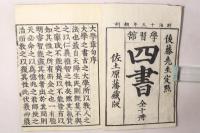 後藤先生定點
學習館
四書 全十冊
佐土原藩藏版
大學章句序
大學之書古之大學所以教人之
法也蓋自天降生民則既莫不與
之以仁義禮智之性矣然其氣質
之稟或不能齊是以不能皆有以
知其性之所有而全之也一有聰
明睿智能盡其性者出於其間則
天必命之以爲億兆之君師使之
治而教之以復其性此伏羲神農